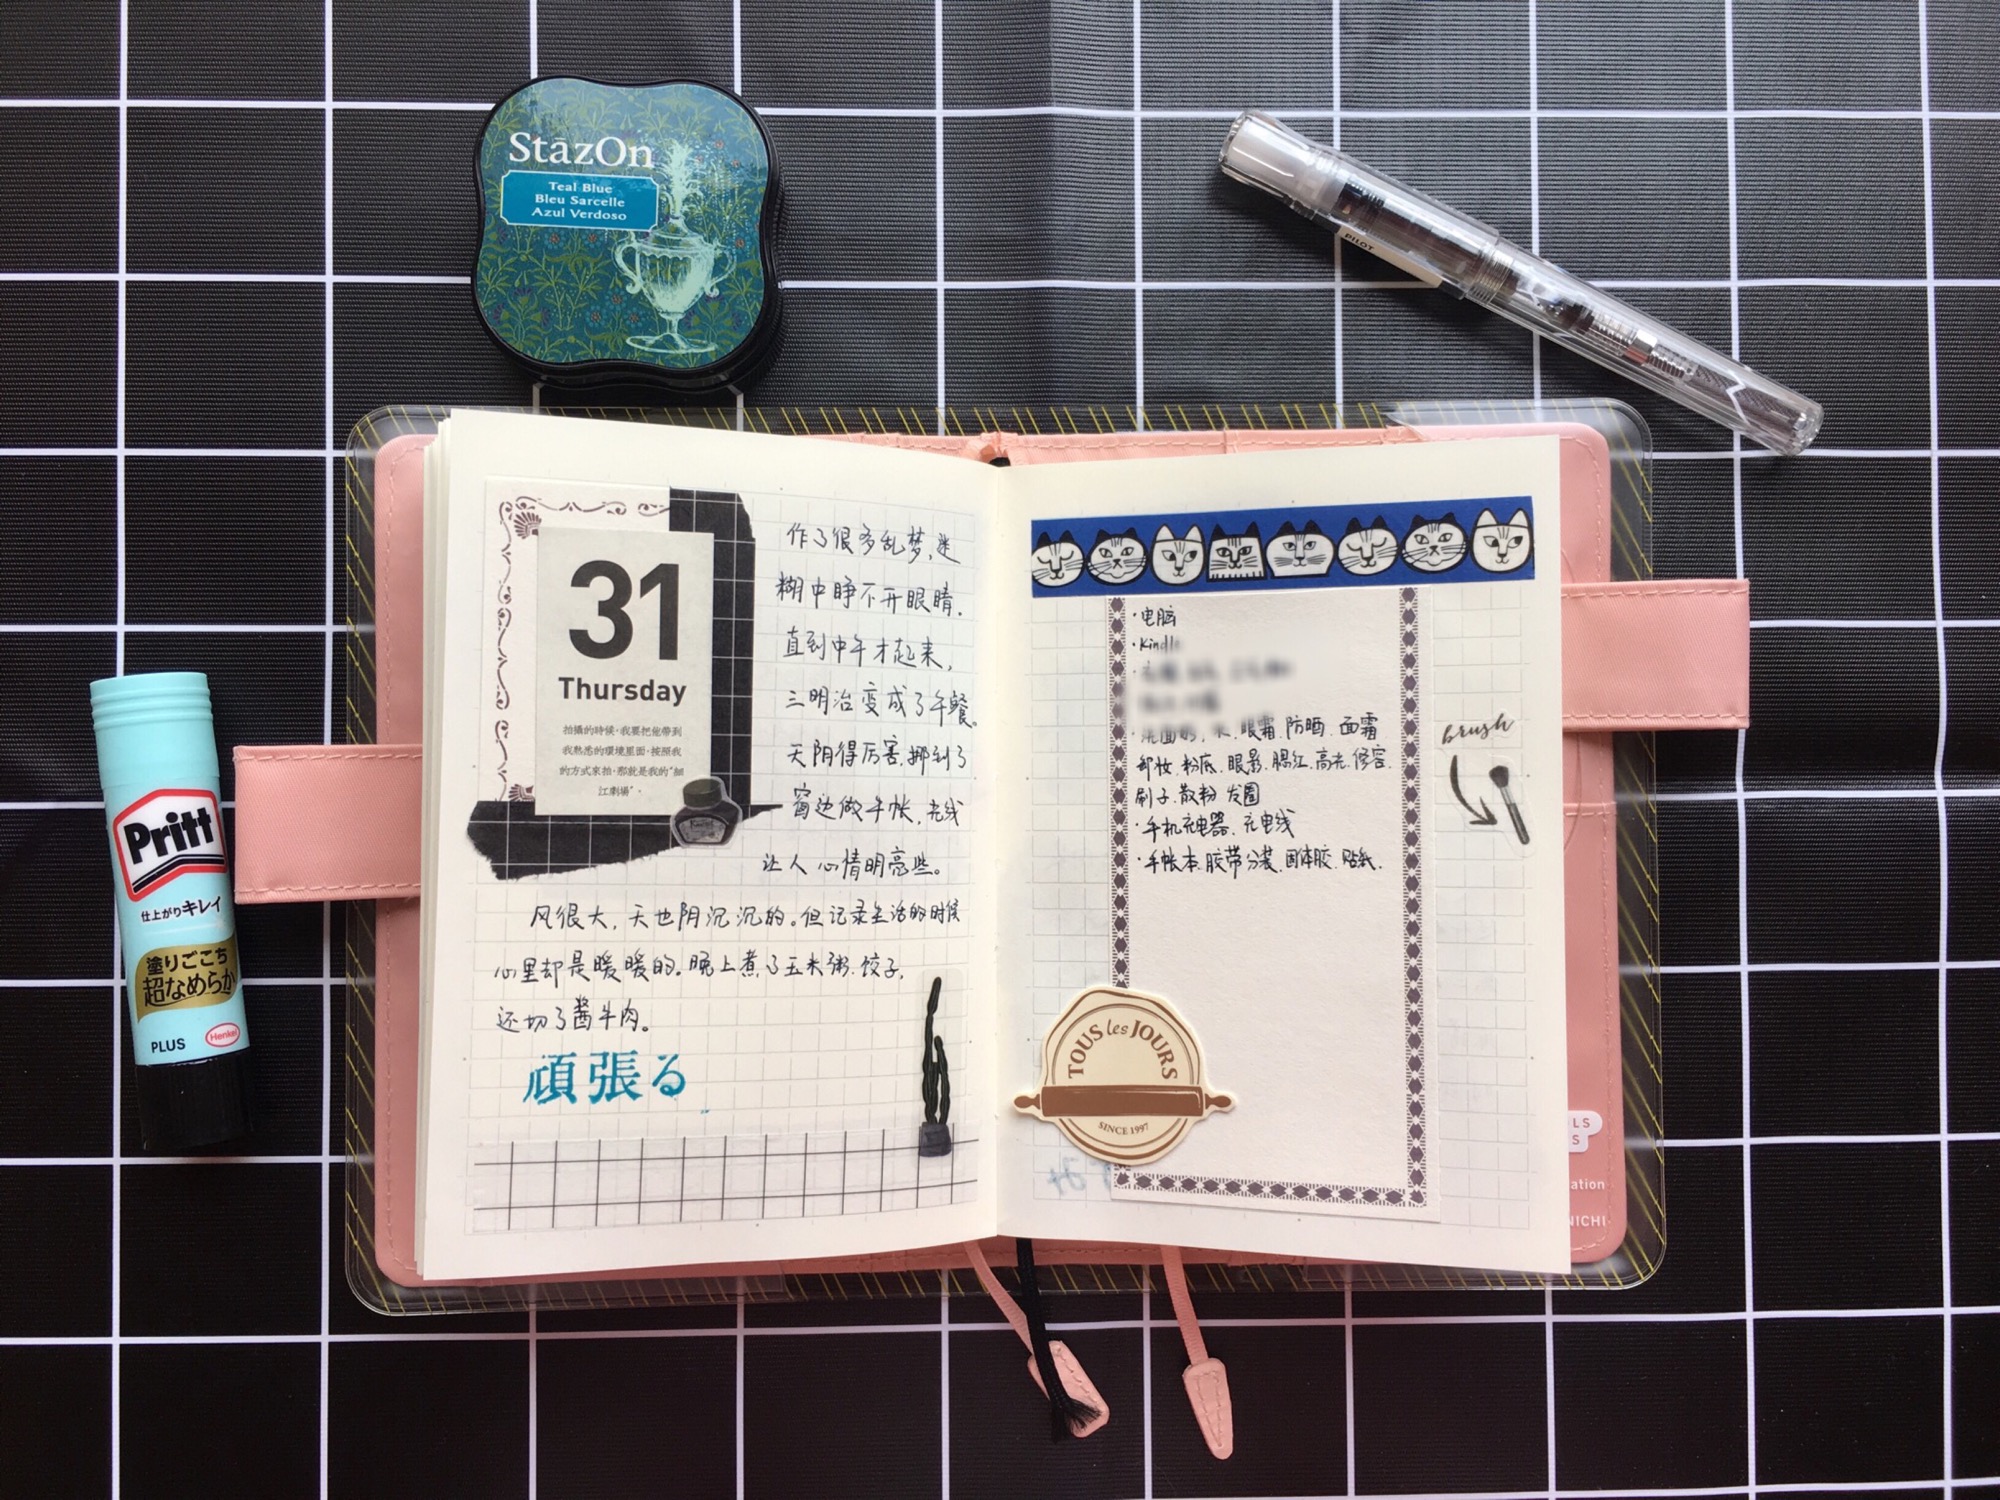 StāzOn
Teal Blue
Bleu Sarcelle
Azul Verdoso
PILOT
Pritt
仕上がりキレイ
塗りごこち
超なめらか
PLUS
Henkel
31
Thursday
拍攝的時候，我要把他帶到
我熟悉的環境里面，按照我
的方式來拍，那就是我的“細
江劇場”。
作了很多乱梦，迷
糊中睁不开眼睛.
直到中午才起来，
三明治变成了午餐。
天阴得厉害，挪到了
窗边做手帐，光线
让人心情明亮些。
风很大，天也阴沉沉的。但记录生活的时候
心里却是暖暖的。晚上煮了玉米粥.饺子，
还切了酱牛肉。
頑張る
·电脑
·Kindle
眼霜.防晒.面霜
卸妆.粉底.眼影.腮红.高光.修容.
刷子.散粉 发圈
·手机充电器.充电线
·手帐本.胶带分装.固体胶.贴纸.
brush
TOUS les JOURS
SINCE 1997
LS
S
ation
NICHI